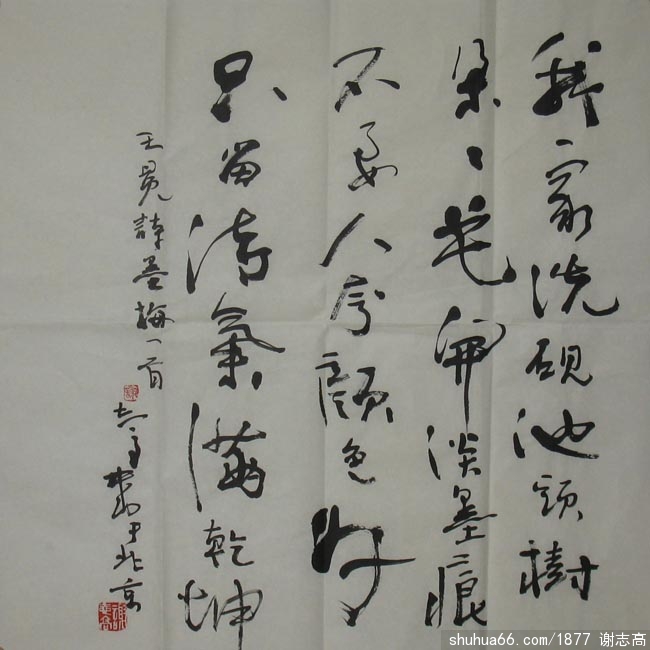 我家洗硯池頭樹
朵々花開淡墨痕
不要人夸顏色好
只留清氣滿乾坤
王冕詩墨梅一首 志高書于北京
shuhua66.com/1877 谢志高